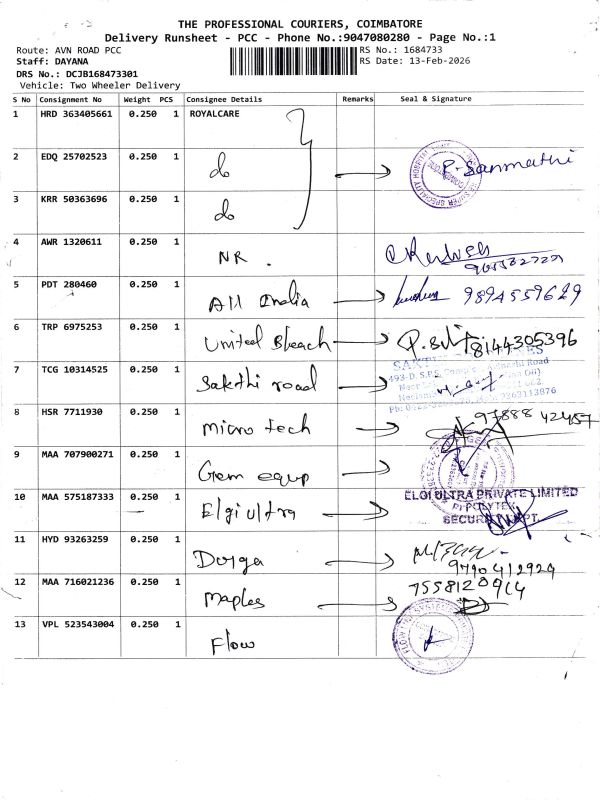 THE PROFESSIONAL COURIERS, COIMBATORE
Delivery Runsheet - PCC - Phone No.:9047080280 - Page No.:1
Route: AVN ROAD PCC RS No.: 1684733
Staff: DAYANA RS Date: 13-Feb-2026
DRS No.: DCJB168473301
Vehicle: Two Wheeler Delivery
S No Consignment No Weight PCS Consignee Details Remarks Seal & Signature
1 HRD 363405661 0.250 1 ROYALCARE
2 EDQ 25702523 0.250 1 do P. Sanmathi
3 KRR 50363696 0.250 1 do
4 AWR 1320611 0.250 1 NR.
5 PDT 280460 0.250 1 All India 9894559629
6 TRP 6975253 0.250 1 United Bleach 8144305396
7 TCG 10314525 0.250 1 Sakthi road
8 HSR 7711930 0.250 1 Micro tech 97888 42457
9 MAA 707900271 0.250 1 Gem equp
10 MAA 575187333 0.250 1 Elgi ultra ELGI ULTRA PRIVATE LIMITED
11 HYD 93263259 0.250 1 Durga 9790412929
12 MAA 716021236 0.250 1 Maples
13 VPL 523543004 0.250 1 Flow